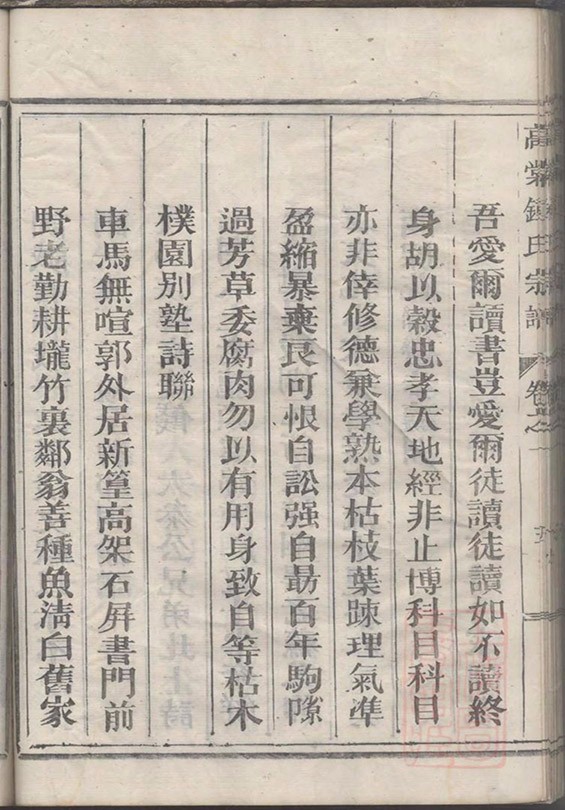 吾愛爾讀書豈愛爾徒讀徒讀如不讀終
身胡以穀忠孝天地經非止博科目科目
亦非倖修德兼學熟本枯枝葉踈理氣準
盈縮暴棄良可恨自訟强自勗百年駒隙
過芳草委腐肉勿以有用身致自等枯木
樸園別塾詩聯
車馬無喧郭外居新篁高架石屏書門前
野老勤耕壠竹裏鄰翁善種魚淸白舊家